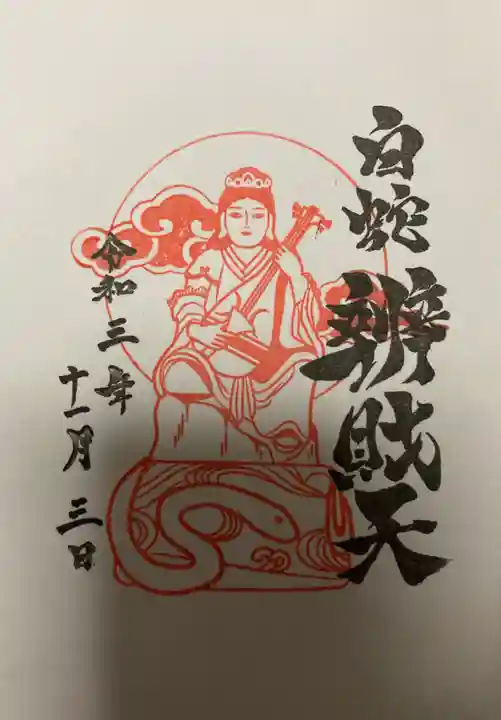 白蛇辨財天
令和三年
十一月三日